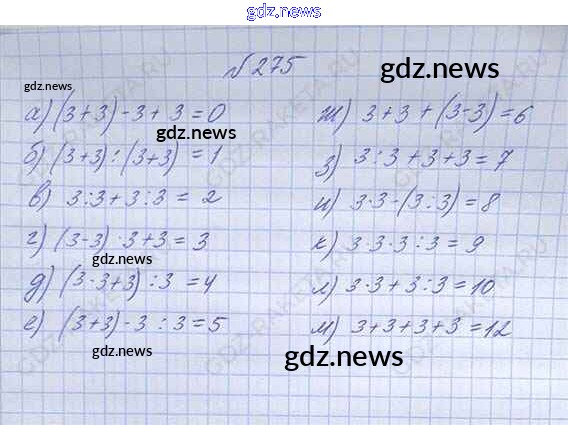 gdz.news
№ 275
gdz.news
gdz.news
а) (3+3)-3+3=0
ж) 3+3+(3-3)=6
gdz.news
б) (3+3):(3+3)=1
з) 3:3+3+3=7
в) 3:3+3:3=2
и) 3·3-(3:3)=8
г) (3-3)·3+3=3
к) 3·3·3:3=9
gdz.news
д) (3·3+3):3=4
л) 3·3+3:3=10
е) (3+3)-3:3=5
м) 3+3+3+3=12
gdz.news
gdz.news